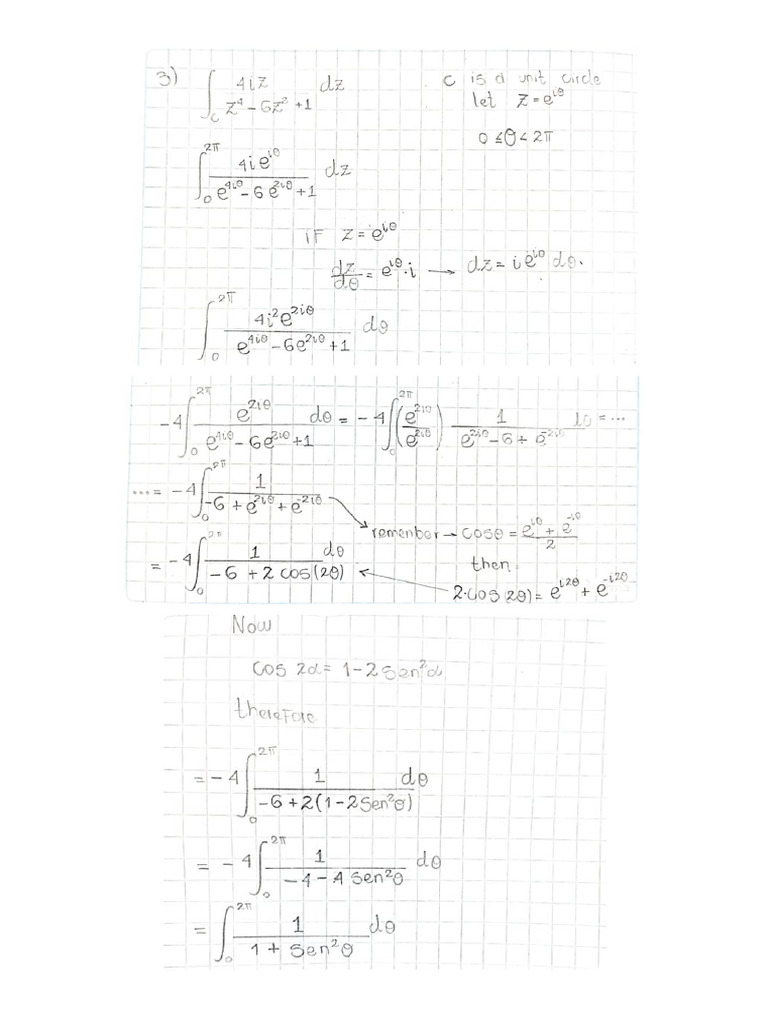 3) ∫_C 4iz / (z⁴ − 6z² + 1) dz    C is a unit circle
let z = e^{iθ}
0 ≤ θ < 2π
∫₀^{2π} 4ie^{iθ} / (e^{4iθ} − 6e^{2iθ} + 1) dz
iF z = e^{iθ}
dz/dθ = e^{iθ}·i → dz = ie^{iθ} dθ.
∫₀^{2π} 4i²e^{2iθ} / (e^{4iθ} − 6e^{2iθ} + 1) dθ
−4 ∫₀^{2π} e^{2iθ} / (e^{4iθ} − 6e^{2iθ} + 1) dθ = −4 ∫₀^{2π} (e^{2iθ} / e^{2iθ}) 1 / (e^{2iθ} − 6 + e^{−2iθ}) dθ = ...
... = −4 ∫₀^{2π} 1 / (−6 + e^{2iθ} + e^{−2iθ})
remember → cosθ = (e^{iθ} + e^{−iθ}) / 2
= −4 ∫₀^{2π} 1 / (−6 + 2 cos(2θ)) dθ    then.
2·cos(2θ) = e^{i2θ} + e^{−i2θ}
Now
cos 2α = 1 − 2 Sen²α
therefore
= −4 ∫₀^{2π} 1 / (−6 + 2(1 − 2Sen²θ)) dθ
= −4 ∫₀^{2π} 1 / (−4 − 4 Sen²θ) dθ
= ∫₀^{2π} 1 / (1 + Sen²θ) dθ